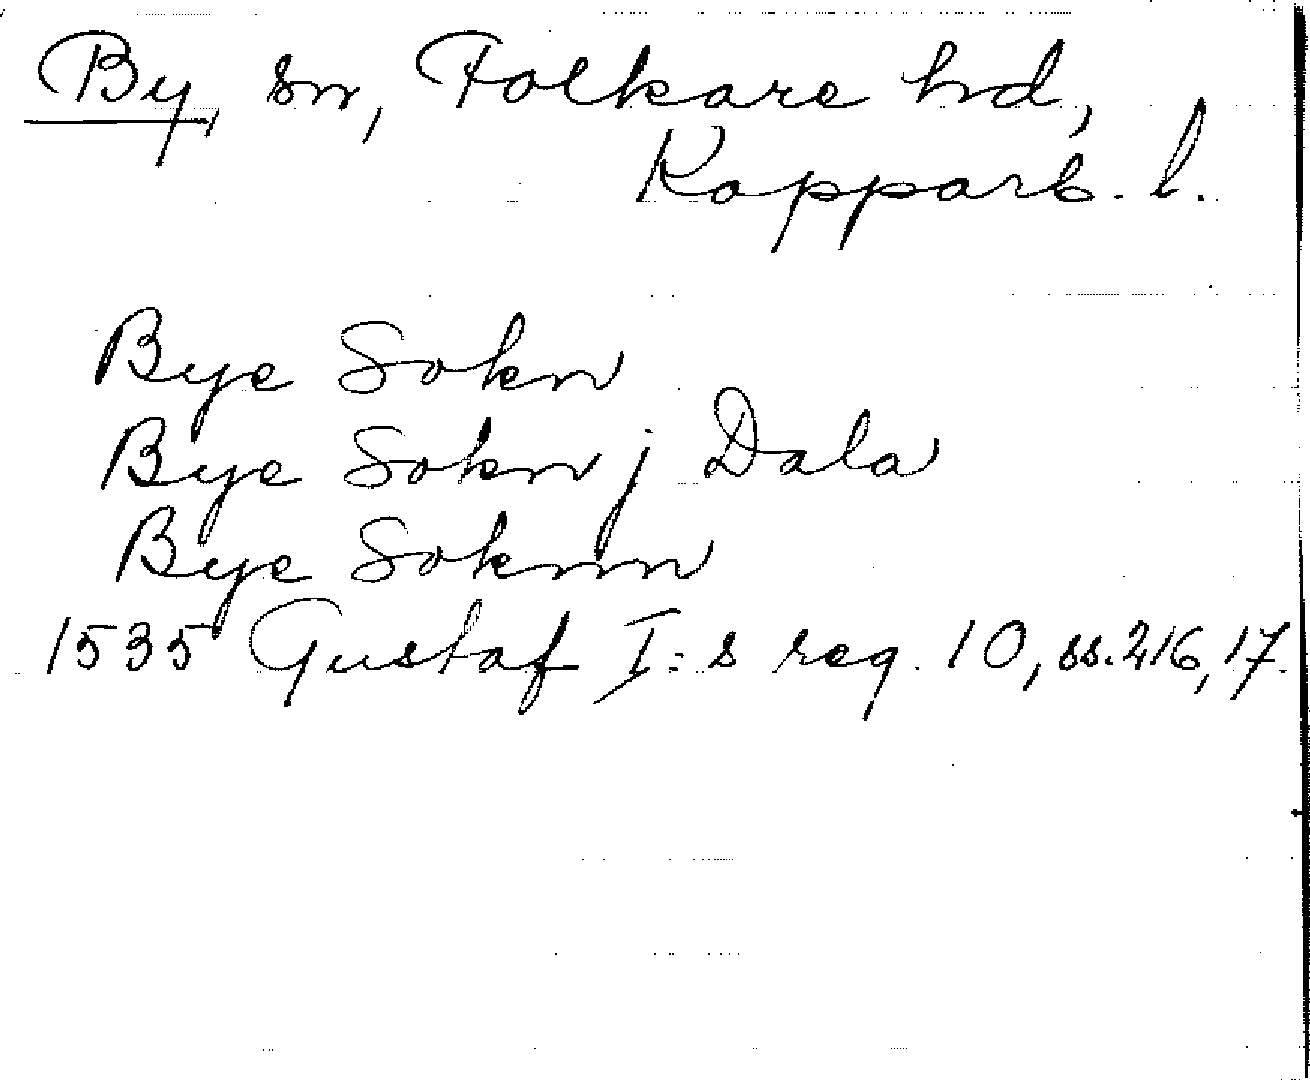 By, sn, Folkare hd,
Kopparb. l.
Bye Sokn
Bye Sokn j Dala
Bye Soknn
1535 Gustaf I:s reg. 10, ss. 216, 17.